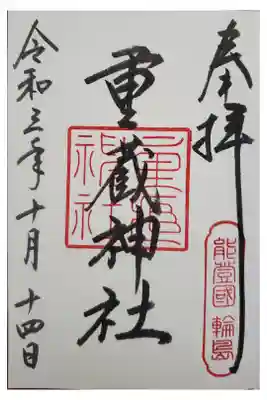 奉拝
能登國 輪島
重蔵神社
重蔵
神社
令和三年十月十四日